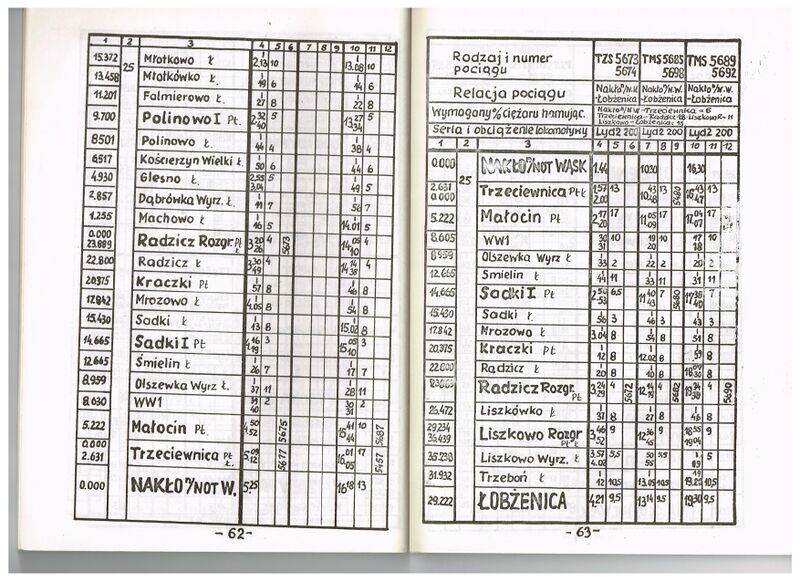 1 2 3 4 5 6 7 8 9 10 11 12
15.372 25 Młotkowo Ł 2.13 10 13.08 10
13.458 Młotkówko Ł 19 6 14 6
11.201 Falmierowo Ł 27 8 22 8
9.700 Polinowo I Pt. 2.32 40 5 13.27 34 5
8501 Polinowo Ł 44 4 38 4
6.517 Kościerzyn Wielki Ł 50 6 44 6
4.930 Glesno Ł. 2.55 3.04 5 49 5
2.857 Dąbrówka Wyrz. Ł. 11 7 56 7
1.255 Machowo Ł 16 5 14.01 5
0.000 23.889 Radzicz Rozgr. Pt Ł 3.20 26 4 5673 14.05 10 4
22.800 Radzicz Ł 3.30 49 4 14.14 38 4
20.375 Kraczki Pt 57 8 46 8
17.842 Mrozowo Ł 4.05 8 54 8
15.430 Sadki Ł 13 8 15.02 8
14.665 Sadki I Pt 4.16 19 3 15.05 10 3
12.665 Śmielin Ł 26 7 17 7
8.959 Olszewka Wyrz Ł. 37 11 28 11
8.030 WW1 39 40 2 30 31 2
5.222 Małocin Pt. 4.50 52 10 5675 15.41 44 10 5687
0.000 2.631 Trzeciewnica Pt Ł. 5.09 12 5677 16.01 05 17 5457
0.000 NAKŁO n/NOT W. 5.25 16.18 13
-62-
Rodzaj i numer pociągu TZS 5673 5674 TMS 5685 5698 TMS 5689 5692
Relacja pociągu Nakło n/N.W. -Łobżenica Nakło n/N.W. -Łobżenica Nakło n/N.W. -Łobżenica
Wymagany % ciężaru hamując. Nakło n/N.W -Trzeciewnica - 6
Seria i obciążenie lokomotywy Lyd2 200 Lyd2 200 Lyd2 200
1 2 3 4 5 6 7 8 9 10 11 12
0.000 25 NAKŁO n/NOT WĄSK 1.44 10.30 16.30
2.631 0.000 Trzeciewnica Pt Ł 1.57 2.00 13 10.43 48 13 5680 16.43 47 13
5.222 Małocin Pt 2.17 20 17 11.05 09 17 17.04 07 17
8.605 WW1 30 31 10 19 20 10 17 18
8959 Olszewka Wyrz Ł 33 2 22 2 20 2
12.665 Smielin Ł 44 11 33 11 31 11
14.665 Sadki I Pt 2.54 53 6,5 11.40 43 7 5680 17.38 40 7
15.430 Sadki Ł 56 3 46 3 43 3
17.842 Mrozowo Ł 3.04 8 54 8 51 8
20.375 Kraczki Pt 12 8 12.02 8 59 8
22.800 Rądzicz Ł 20 8 10 8
Radzicz Rozgr. Pt 3.24 29 4 5672 4 5682 4 5690
26.472 Liszkówko Ł 37 8 27 8 46 8
29.234 36.439 Liszkowo Rozgr Pt Ł 3.46 52 9 12.36 45 9 18.55 19.04 9
35.238 Liszkowo Wyrz. Ł 3.57 4.02 5,5 50 55 5,5 09 5
31.932 Trzeboń Ł 12 10,5 13.05 10,5 19.20 10,5
29.222 ŁOBŻENICA 4.21 9,5 13.14 9,5 19.30 9,5
-63-